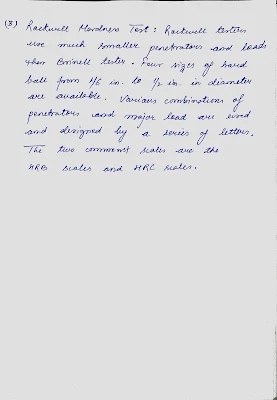 (3) Rockwell Hardness Test : Rockwell testers
use much smaller penetrators and loads
than Brinell tester. Four sizes of hard
ball from 1/6 in. to 1/2 in. in diameter
are available. Various combinations of
penetrators and major load are used
and designed by a series of letters.
The two commonest scales are the
HRB scales and HRC scales.